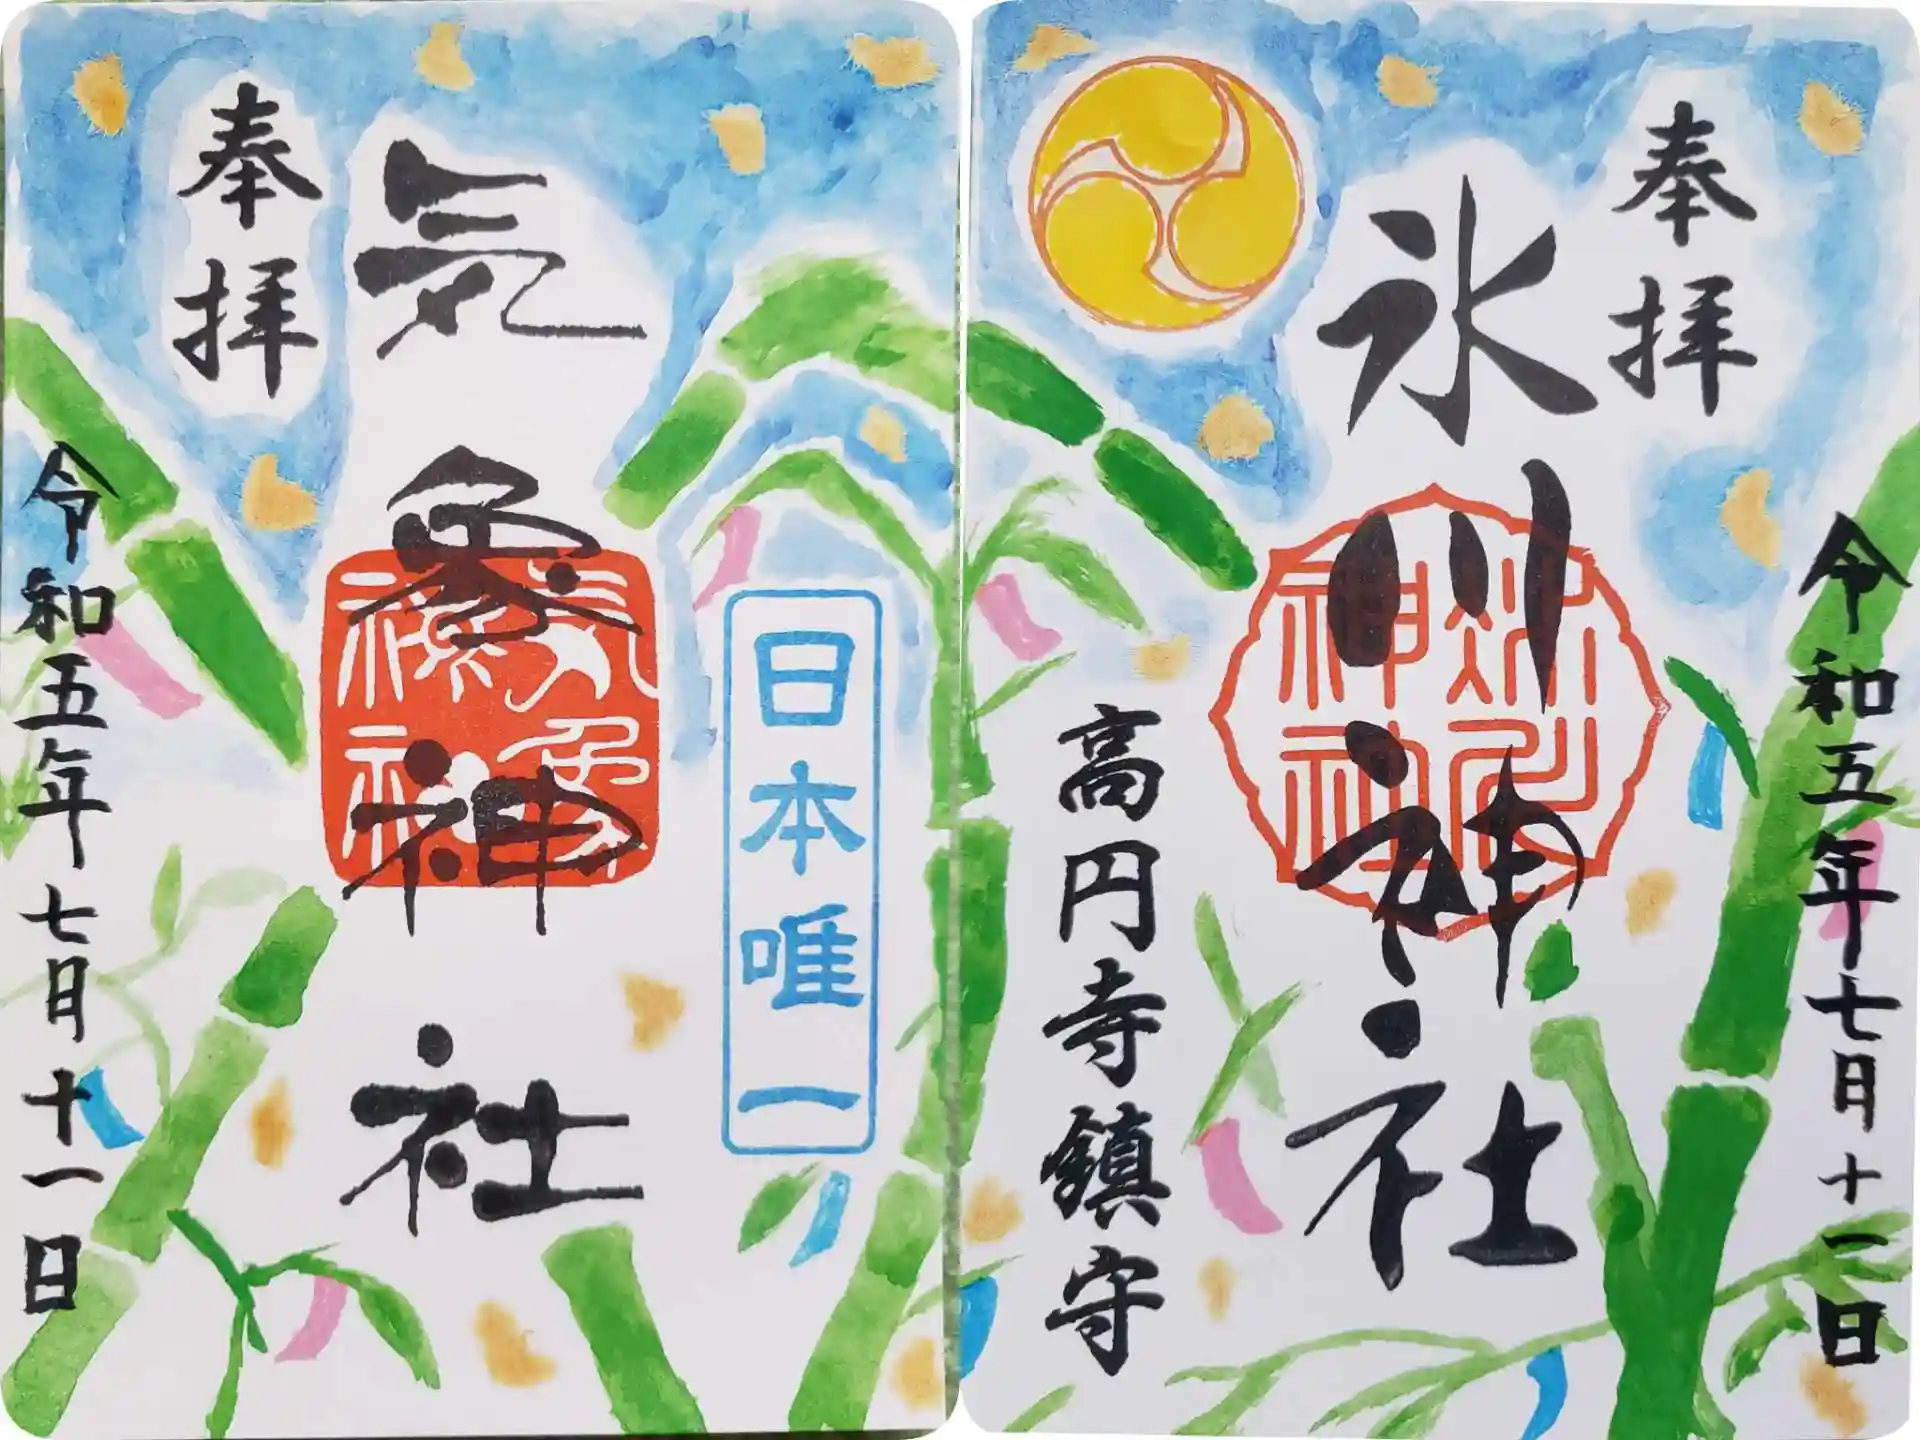 奉拝
氷川神社
高円寺鎮守
令和五年七月十一日
氷川神社
日本唯一
気象神社
奉拝
令和五年七月十一日
気象神社